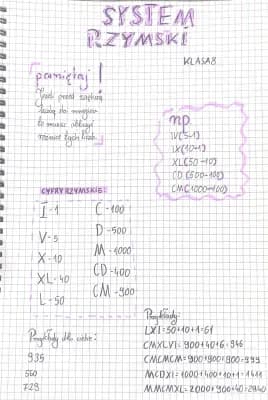 SYSTEM
RZYMSKI
KLASA 8
pamiętaj!
Jeśli przed większą
liczbą jest mniejsza
to musisz obliczyć
różnicę tych liczb.
np.
IV(5-1)
IX(10-1)
XL(50-10)
CD(500-100)
CM(1000-100)
CYFRY RZYMSKIE:
I-1
V-5
X-10
XL-40
L-50
C-100
D-500
M-1000
CD-400
CM-900
Przykłady dla ciebie:
935
729
Przykłady:
LXI=50+10+1=61
CMXLVI=900+40+6=946
CMCMCM=900+900+900=999
MCDXI=1000+400+10+1=1411
MMCMXL=2000+900+40=2940